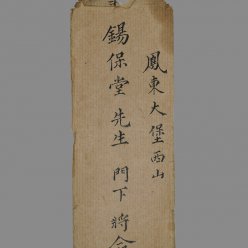 鳳東大堡西山
錫保堂先生門下將